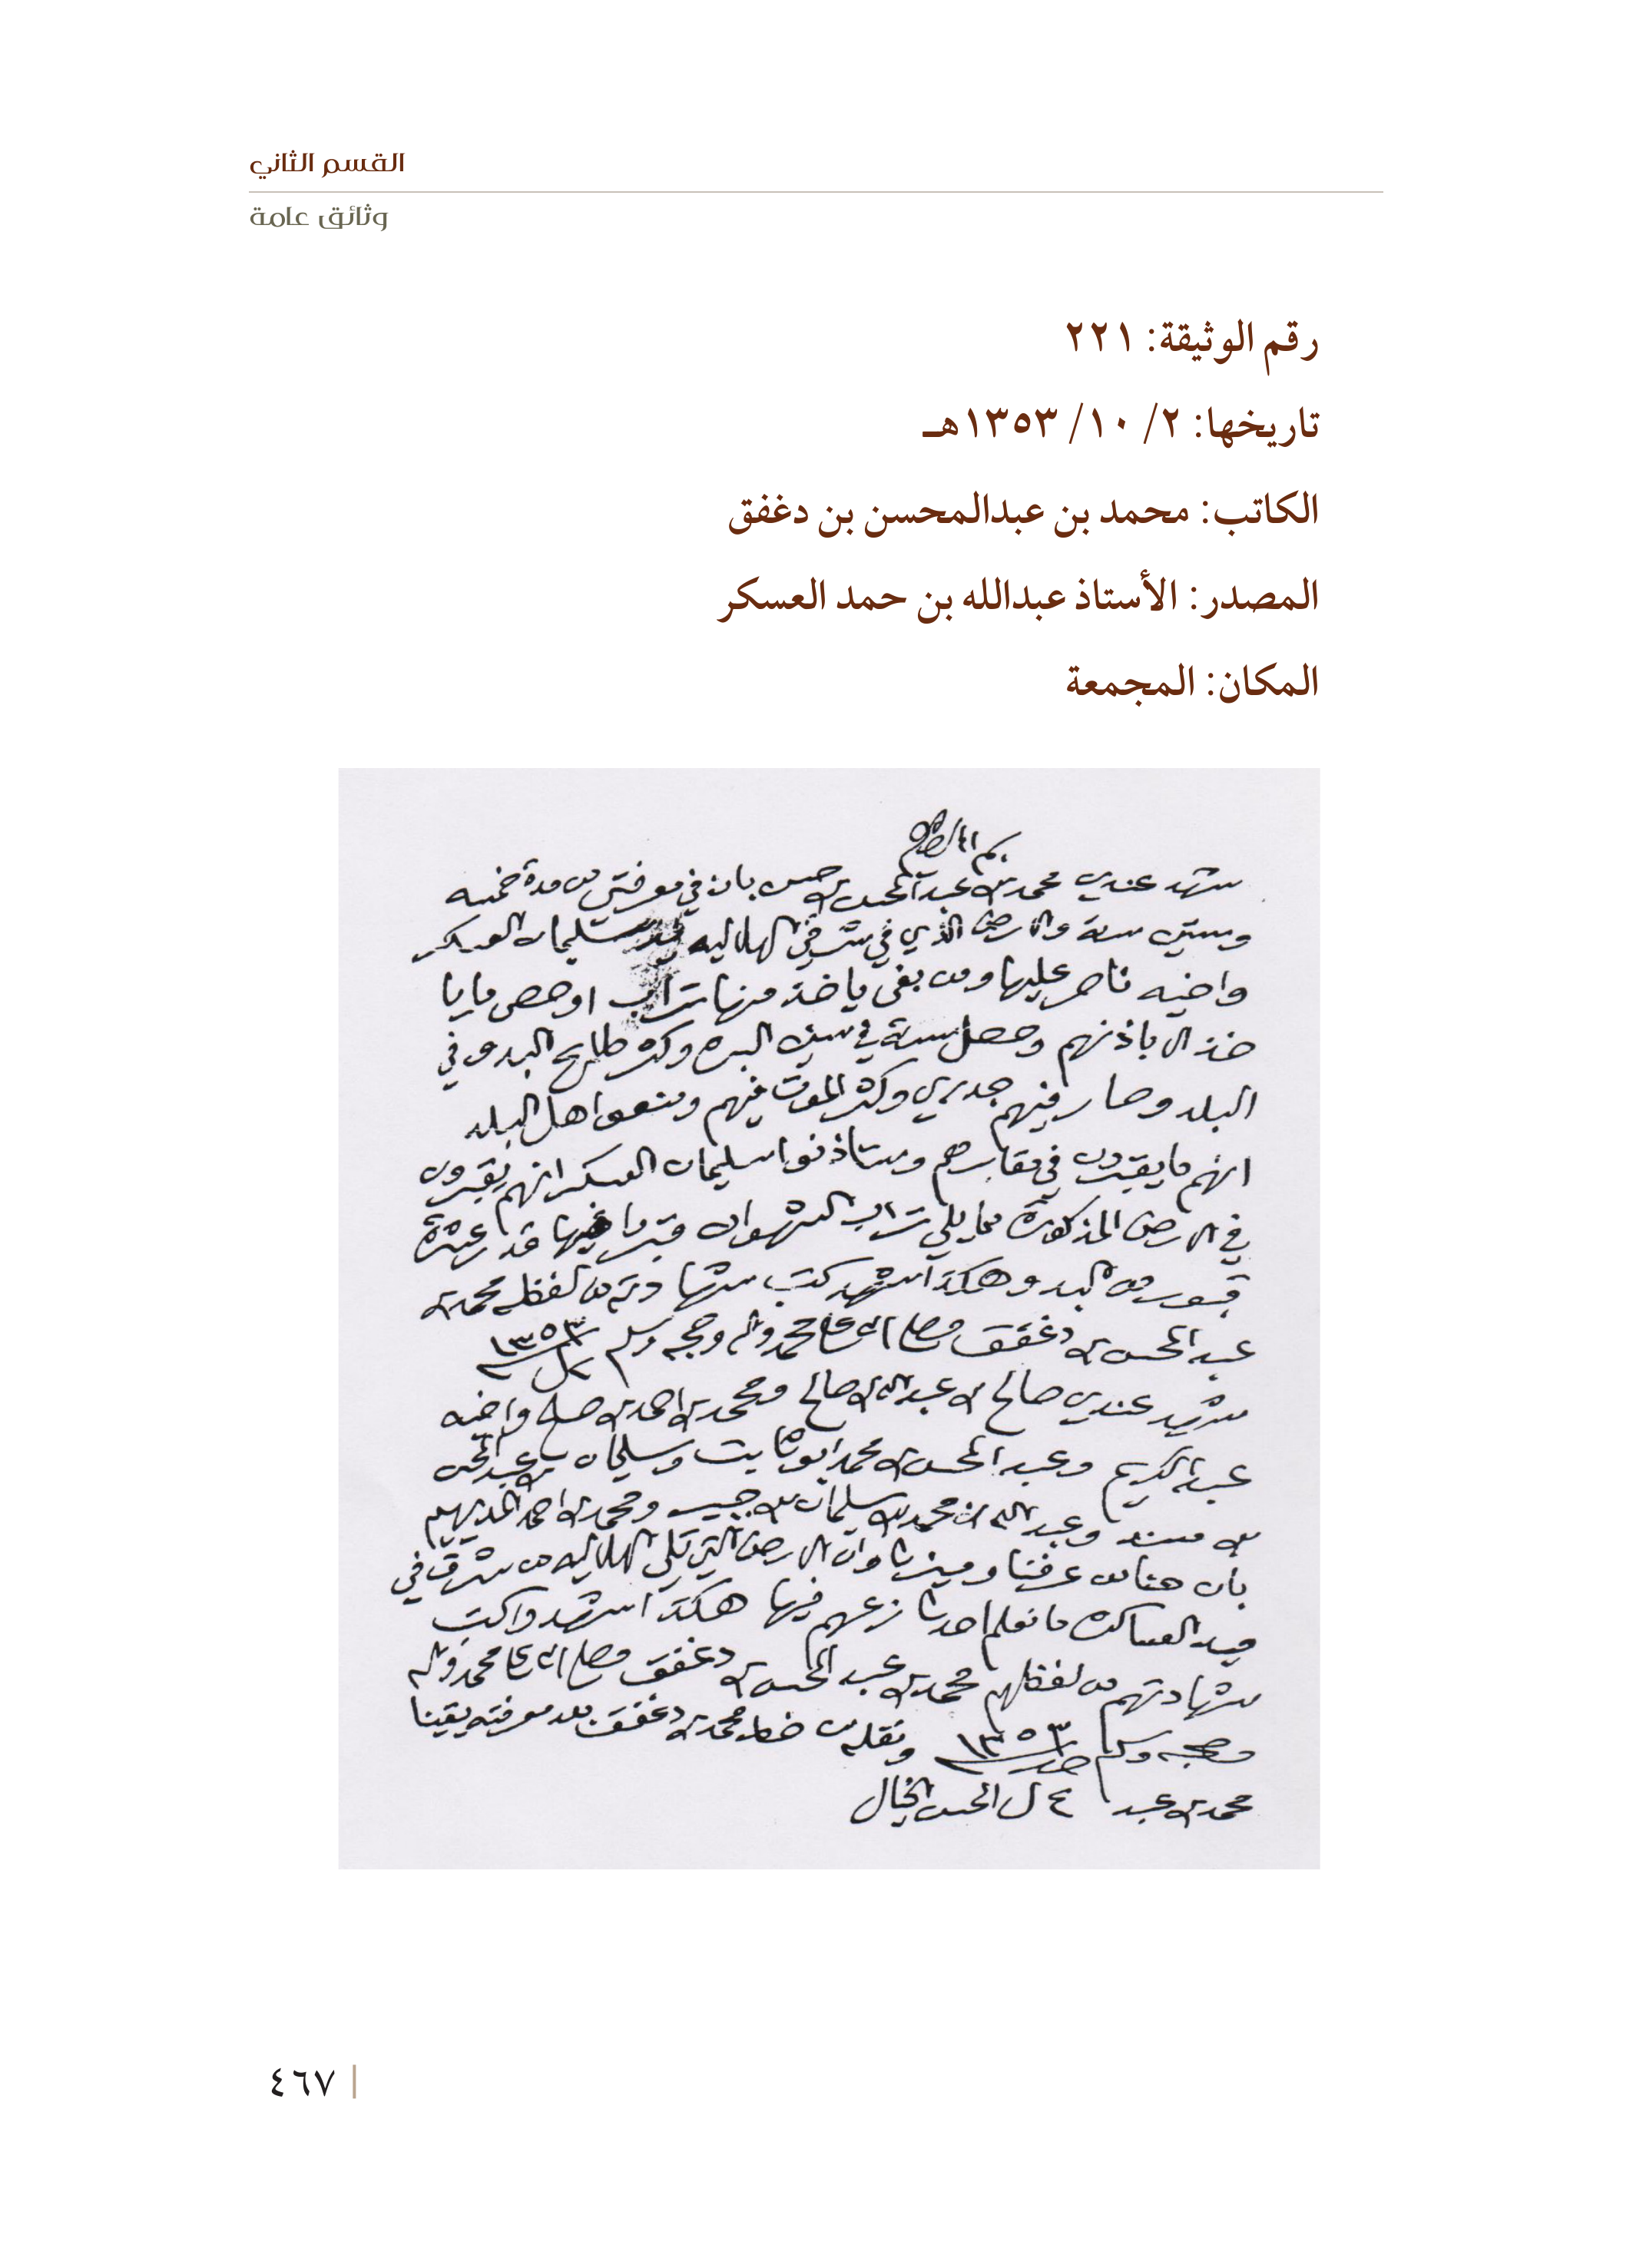 القسم الثاني
وثائق عامة
رقم الوثيقة: ٢٢١
تاريخها: ٢/ ١٠/ ١٣٥٣هـ
الكاتب: محمد بن عبدالمحسن بن دغفق
المصدر: الأستاذ عبدالله بن حمد العسكر
المكان: المجمعة
شهد عندي محمد بن عبد المحسن بان في معرفتي من مدة خمسه
وستين سنة والارض الذي في شرقي الهلاليه سليمان العسكر
واخيه ناصر عليها ومن بغى ياخذ منها تراب او حصى ما يا
خذ الا باذنهم وحصل سنة في سنين البره وكثر طايح البدو في
البلد وصار فيهم جدري وكثر الموت فيهم ومنعوا اهل البلد
انهم ما يقبرون في مقابرهم وستاذنوا سليمان العسكر انهم يقبرون
في الارض المذكورة مما يلي تراب الشهوان قبروا فيها قدر عشرة
قبور من البدو هكذا شهد كتب شهادته من لفظه محمد بن
عبد المحسن بن دغفق وصلى الله على محمد واله وصحبه وسلم ١٣٥٣
شهد عندي صالح بن عبد الله بن صالح ومحمد بن احمد بن صالح واخيه
عبد الكريم وعبد المحسن بن محمد ابو ثابت وسليمان بن عبد المحسن
بن مسند وعبد الله بن محمد بن سليمان بن ومحمد بن احمد المديهيم
بان هنا من عرفنا وميزنا وان الارض التي تلي الهلاليه من شرق في
يد العساكره ما نعلم احدا نازعهم فيها هكذا شهدوا كتب
شهادتهم من لفظهم محمد بن عبد المحسن بن دغفق وصلى الله على محمد واله
وصحبه وسلم ١٣٥٣ ونقله من خط محمد بن دغفق بعد معرفته يقينا
محمد بن عبد المحسن الخيال
٤٦٧